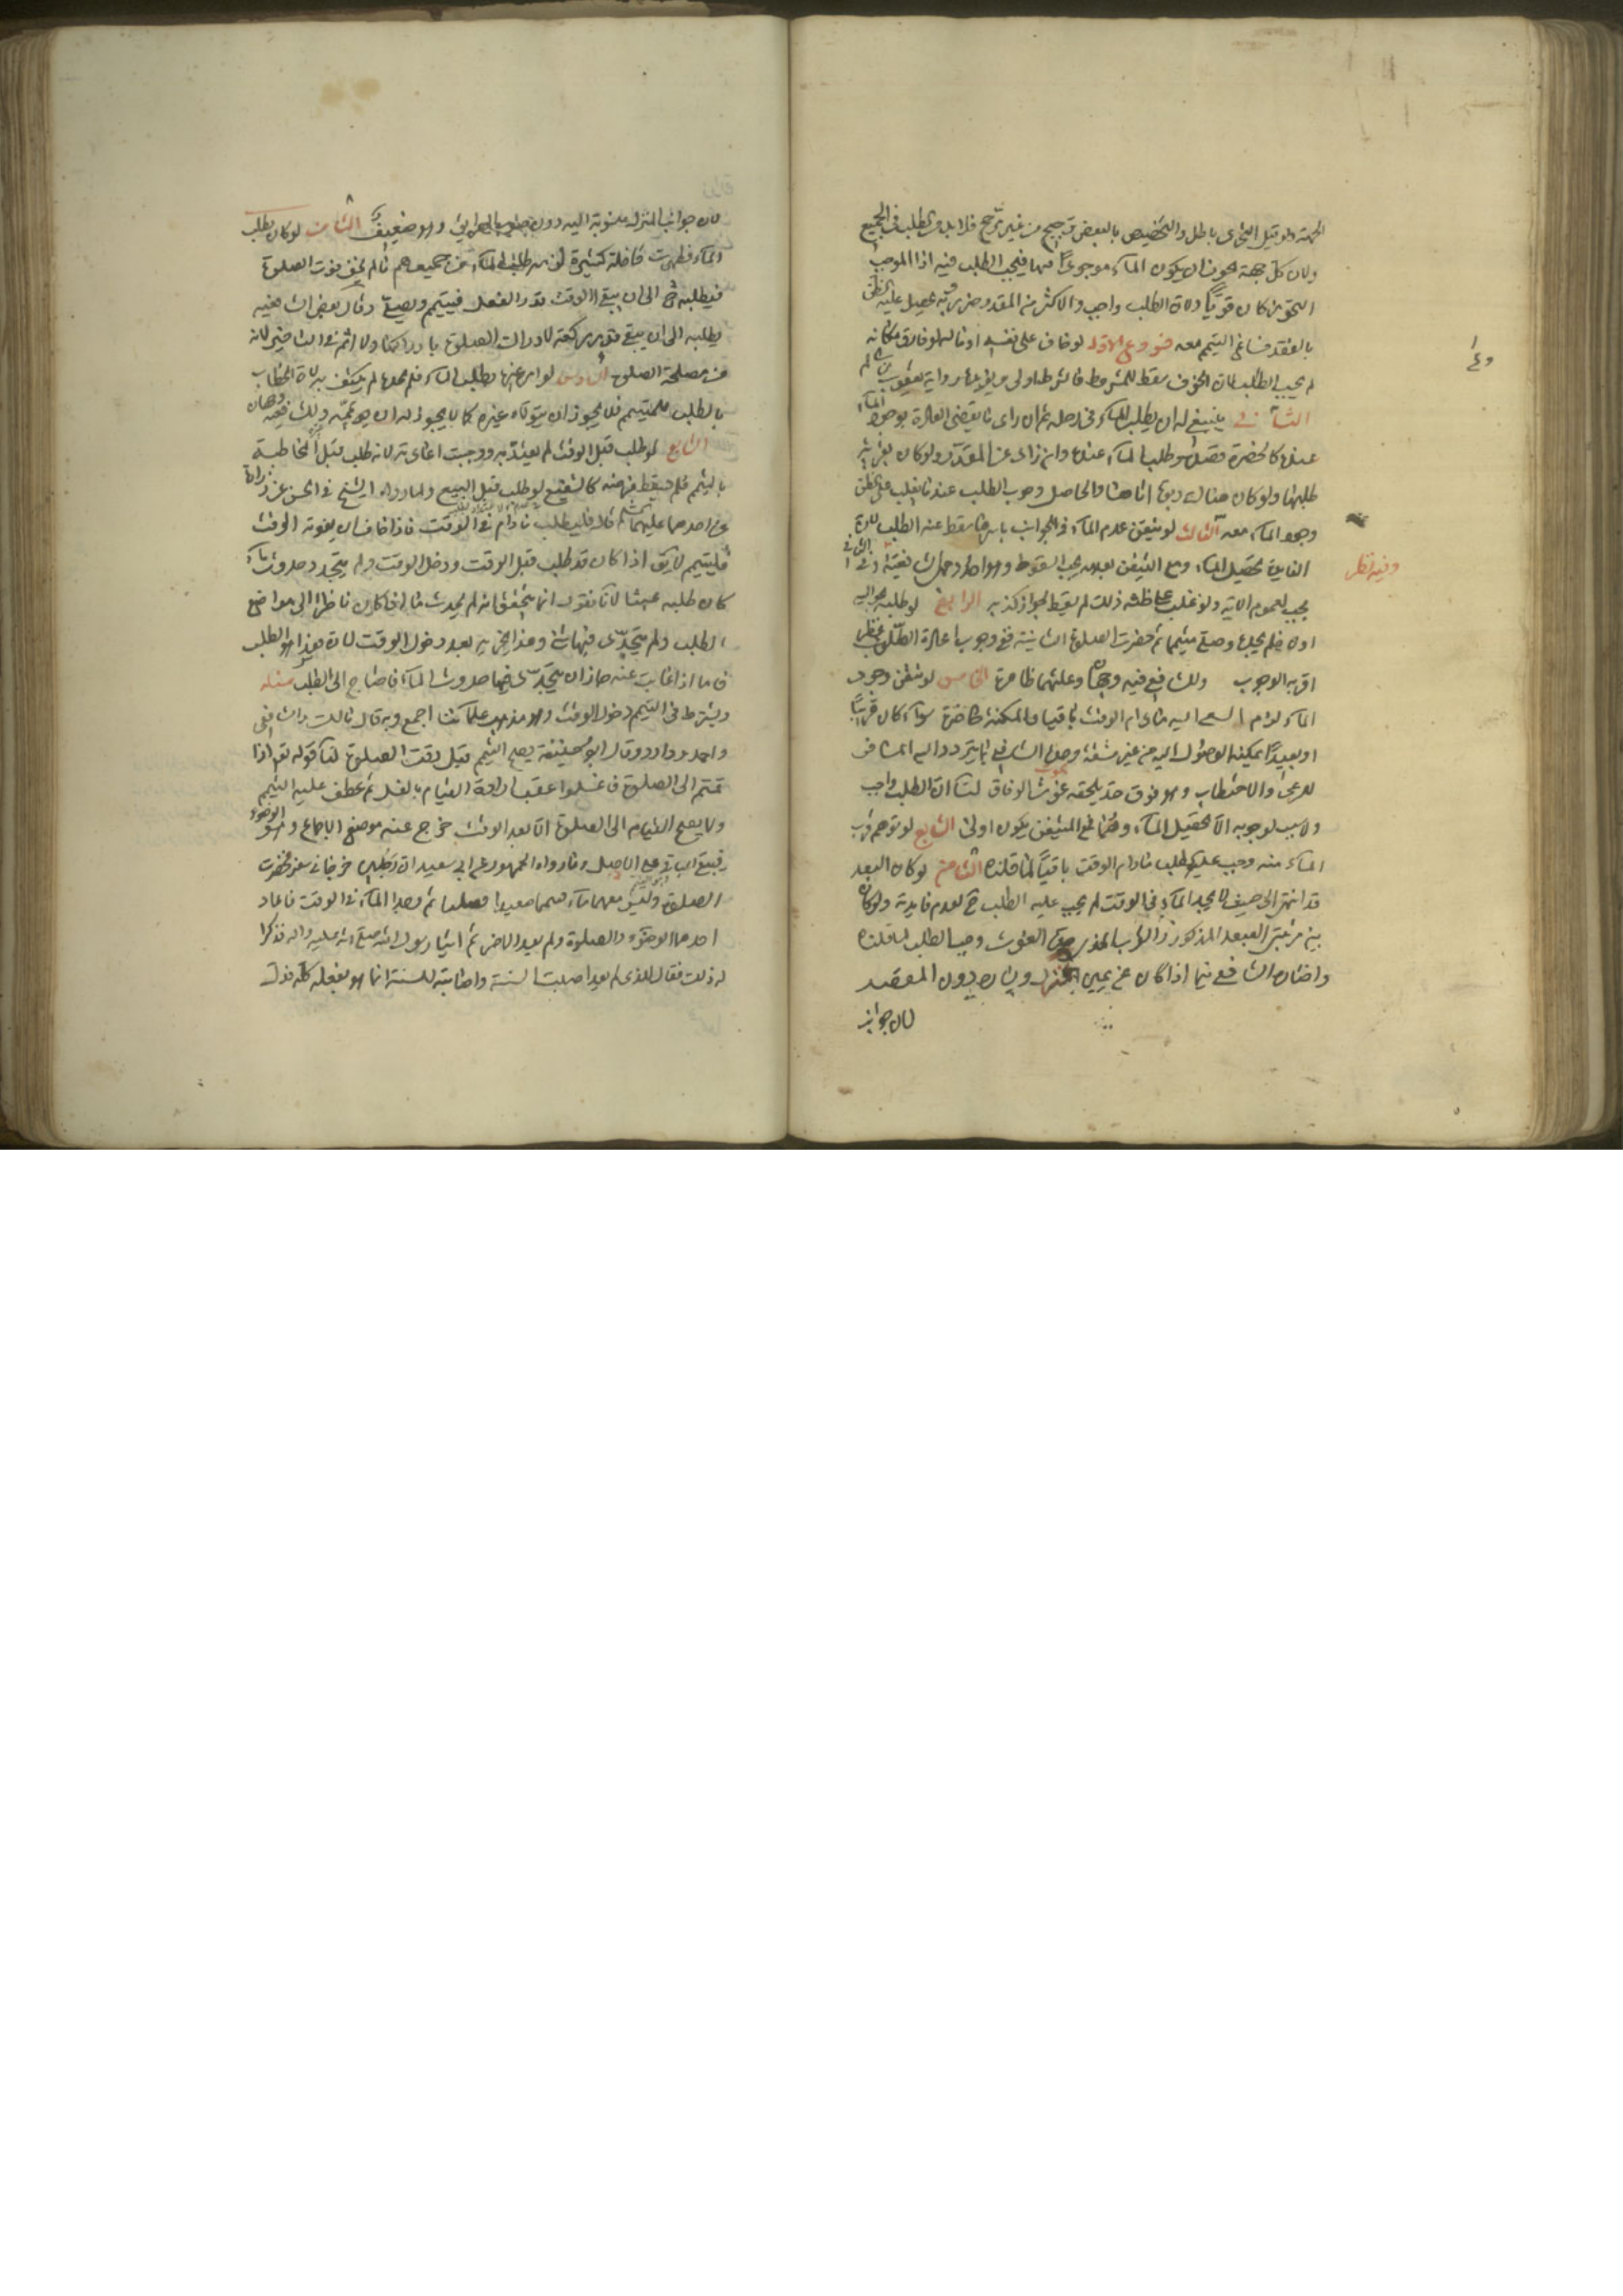 الجهة ولو قيل التحرى باطل والتخصيص بالبعض ترجيح من غير مرجح فلا بد من الطلب فى الجميع
ولان كل جهة يجوز ان يكون الماء موجودًا فيها فيجب الطلب فيه اذا الموجب
التجويز كان قويًا ولان الطلب واجب والاكثر من المقدر
بالفقد فساغ التيمم معه فروع الاول لو خاف على نفسه او ماله لو فارق مكانه
لم يجب الطلب لان الخوف يسقط المشروط فالشرط اولى ويؤيدها رواية يعقوب بن سالم
الثانى ينبغى له ان يطلب الماء فى رحله ثم ان راى ما يقضى العادة بوجود الماء
عنده كالخضرة قصده وطلب الماء عنده وان زاد عن المقدر ولو كان بقربه قرية
طلبها ولو كان هناك ربوة اتاها والحاصل وجوب الطلب عند ما يغلب على الظن
وجود الماء معه الثالث لو تيقن عدم الماء فى الجوانب باسرها سقط عنه الطلب لان
الفايدة تحصيل الماء ومع التيقن بعدمه يجب السقوط وهو احد وجهى الشافعية وفى الثانى
وفيه نظر
يجب لعموم الاية ولو غلب على ظنه ذلك لم يسقط لجواز كذبه الرابع لو طلب حواليه
اولا فلم يجد وصلى متيمما ثم حضرت الصلوة الثانية ففى وجوب اعادة الطلب نظر
اقربه الوجوب وللشافعى فيه وجهان وعلتهما ظاهرة الخامس لو تيقن وجود
الماء لزم السعى اليه ما دام الوقت باقيا والمكنة حاضرة سواء كان قريبًا
او بعيدًا يمكنه الوصول اليه من غير مشقة وحد الشافعى ما يتردد اليه المسافر
للرعى والاحتطاب وهو فوق حد يلحقه غوث الرفاق لنا ان الطلب واجب
ولا سبب لوجوبه الا تحصيل الماء وهنا مع المتيقن يكون اولى السابع لو توهم قرب
الماء منه وجب عليه الطلب مادام الوقت باقيًا لما قلناه الثامن لو كان البعد
قد انتهى الى حيث لا يجد الماء فى الوقت لم يجب عليه الطلب ح لعدم فايدته ولو كان
بين مرتبتى البعد المذكور والقرب الغوث وجب الطلب لما قلناه
واختلف الشافعى فيما اذا كان عن يمين المنزل ويساره دون المقصد
لان جوانب
لان جوانب المنزل منسوبة اليه دون وهو ضعيف الثامن لو كان يطلب
الماء فظهرت قافلة كثيرة لزمه طلب الماء من جميعهم ما لم يخف فوت الصلوة
فيطلبه ح الى ان يبقى الوقت قدر الفعل فيتيمم ويصلى وقال بعض الشافعية
يطلبه الى ان يبقى قدر ركعة لادراك الصلوة بادراكها ولا اثم فى التاخير لانه
من مصلحة الصلوة السادس لو امر غيره بطلب الماء فلم يجده لم يكتف به لان الخطاب
بالطلب للمتيمم فلا يجوز ان يتولاه غيره كما لا يجوز له ان ييممه وللشافعى وجهان
السابع لو طلب قبل الوقت لم يعتد به ووجبت اعادته لانه طلب قبل المخاطبة
بالتيمم فلم يسقط فرضه كالشفيع لو طلب قبل البيع ولما رواه الشيخ فى الحسن عن زرارة
عن احدهما عليهما السلم قال فليطلب مادام فى الوقت فاذا خاف ان يفوته الوقت
فليتيمم لا يق اذا كان قد طلب قبل الوقت ودخل الوقت ولم يتجدد حدوث ماء
كان طلبه عبثا لانا نقول انما يتحقق انه لم يحدث ماء اذا كان ناظرا الى مواضع
الطلب ولم يتجدد فيها شئ وهذا يجزيه بعد دخول الوقت لان هذا هو الطلب
فاما اذا غابت عنه جاز ان يتجدد فيها حدوث الماء فاحتاج الى الطلب مسئلة
ويشترط فى التيمم دخول الوقت وهو مذهب علمائنا اجمع وبه قال مالك والشافعى
واحمد وداود وقال ابو حنيفة يصح التيمم قبل وقت الصلوة لنا قوله تع اذا
قمتم الى الصلوة فاغسلوا عقب ارادة القيام بالغسل ثم عطف عليه التيمم
ولا يصح القيام الى الصلوة الا بعد الوقت خرج عنه الوضوء موضع الاجماع وهو
فيبقى الباقى على الاصل وما رواه الجمهور عن ابى سعيد ان رجلين خرجا فى سفر فحضرت
الصلوة وليس معهما ماء فتيمما صعيدا فصليا ثم وجدا الماء فى الوقت فاعاد
احدهما الوضوء والصلوة ولم يعد الاخر ثم اتيا رسول الله صلى الله عليه واله فذكرا
له ذلك فقال للذى لم يعد اصبت السنة واصابته للسنة انما هو بفعله كله فدل